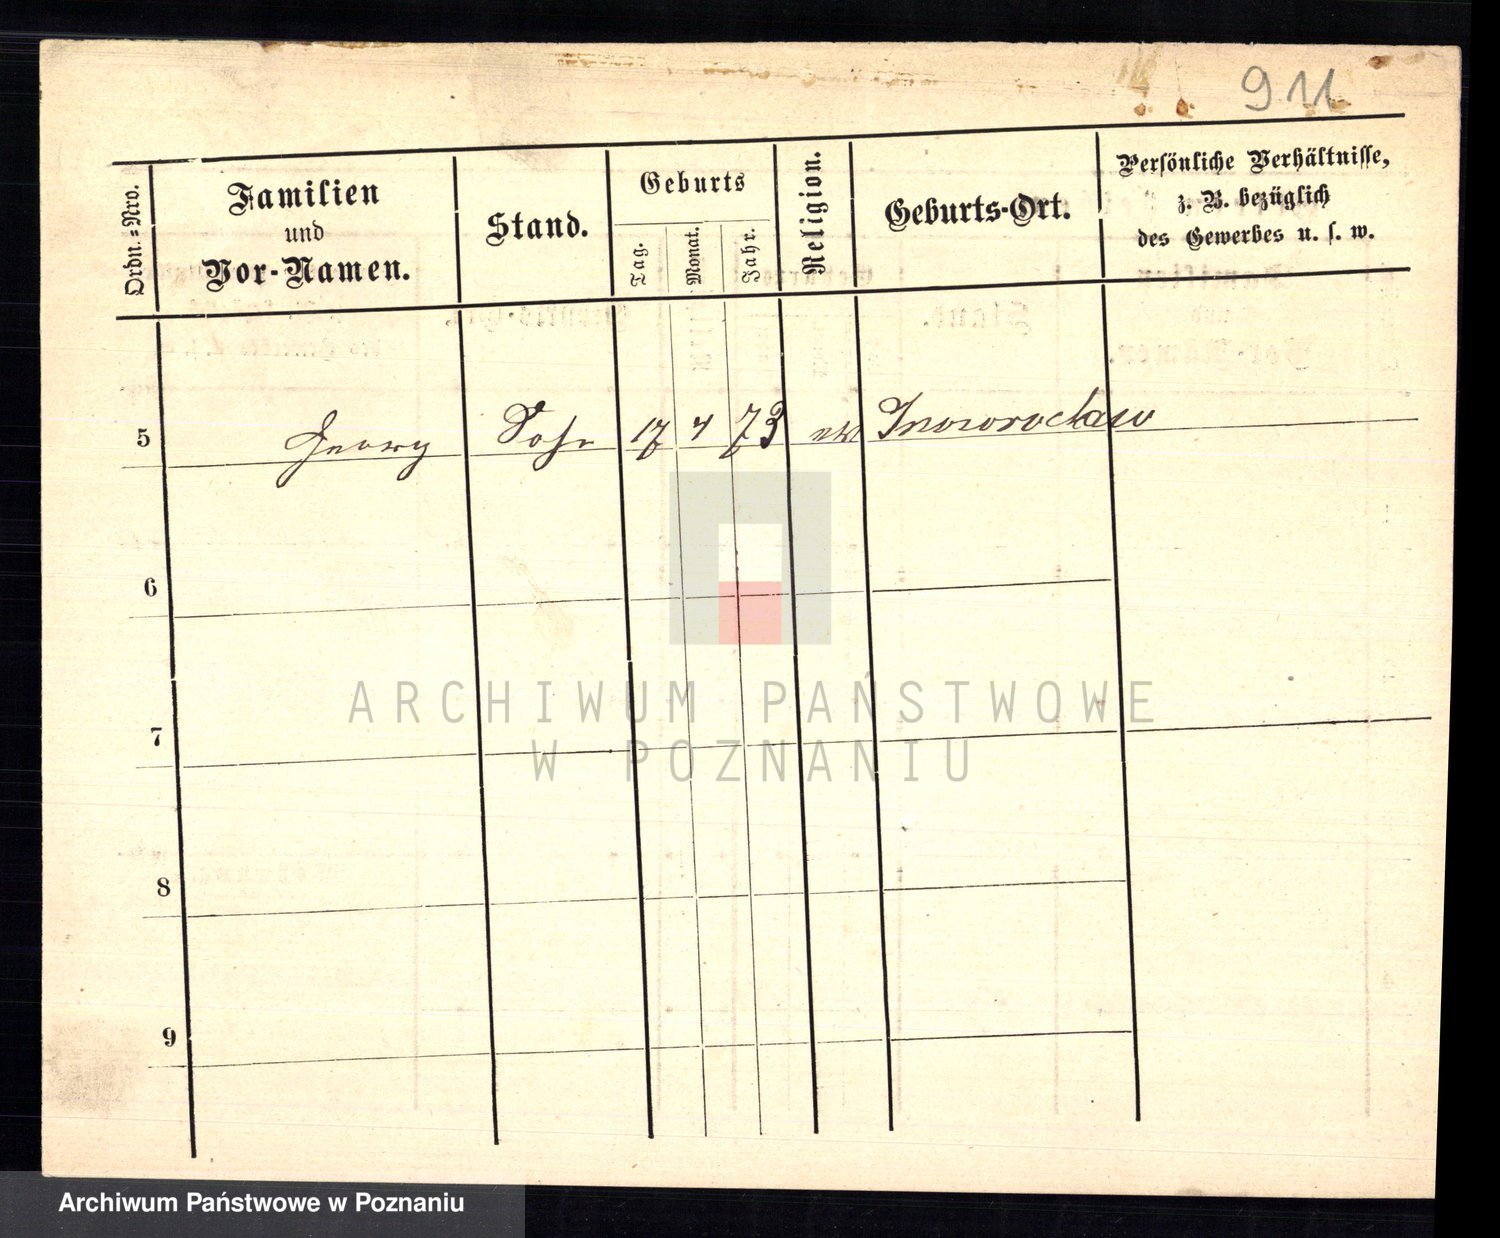 911
Ordn.=Nro.
Familien
und
Vor-Namen.
Stand.
Geburts
Tag.
Monat.
Jahr.
Religion.
Geburts-Ort.
Persönliche Verhältnisse,
z. B. bezüglich
des Gewerbes u. s. w.
5 Georg Sohn 17 4 73 Inowroclaw
6
7
8
9
ARCHIWUM PAŃSTWOWE
W POZNANIU
Archiwum Państwowe w Poznaniu